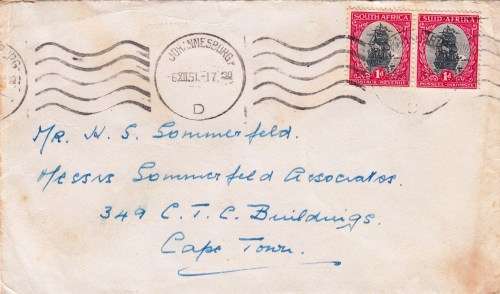 JOHANNESBURG
6XII51.-17
D
SOUTH AFRICA
1D
SUID-AFRIKA
1D
Mr. H. S. Sommerfeld.
Messrs Sommerfeld Associates.
349 C. T. C. Buildings.
Cape Town.